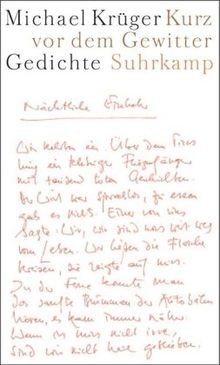 Michael Krüger Kurz
vor dem Gewitter
Gedichte Suhrkamp
Nächtliche Einkehr
Wir kehrten ein. Über dem Tresen
hing ein klebriger Fliegenfänger
mit tausend toten
Der Wirt war sprachlos, zu essen
gab es nichts. Einer von uns
sagte: Wir, wir sind
vom Leben. Wir ließen die Flasche
kreisen, sie zeigte auf uns.
In der Ferne konnte man
das sanfte Brummen der Autobahn
hören, es kam immer näher.
Wenn ich mich nicht irre,
sind wir nicht geblieben.